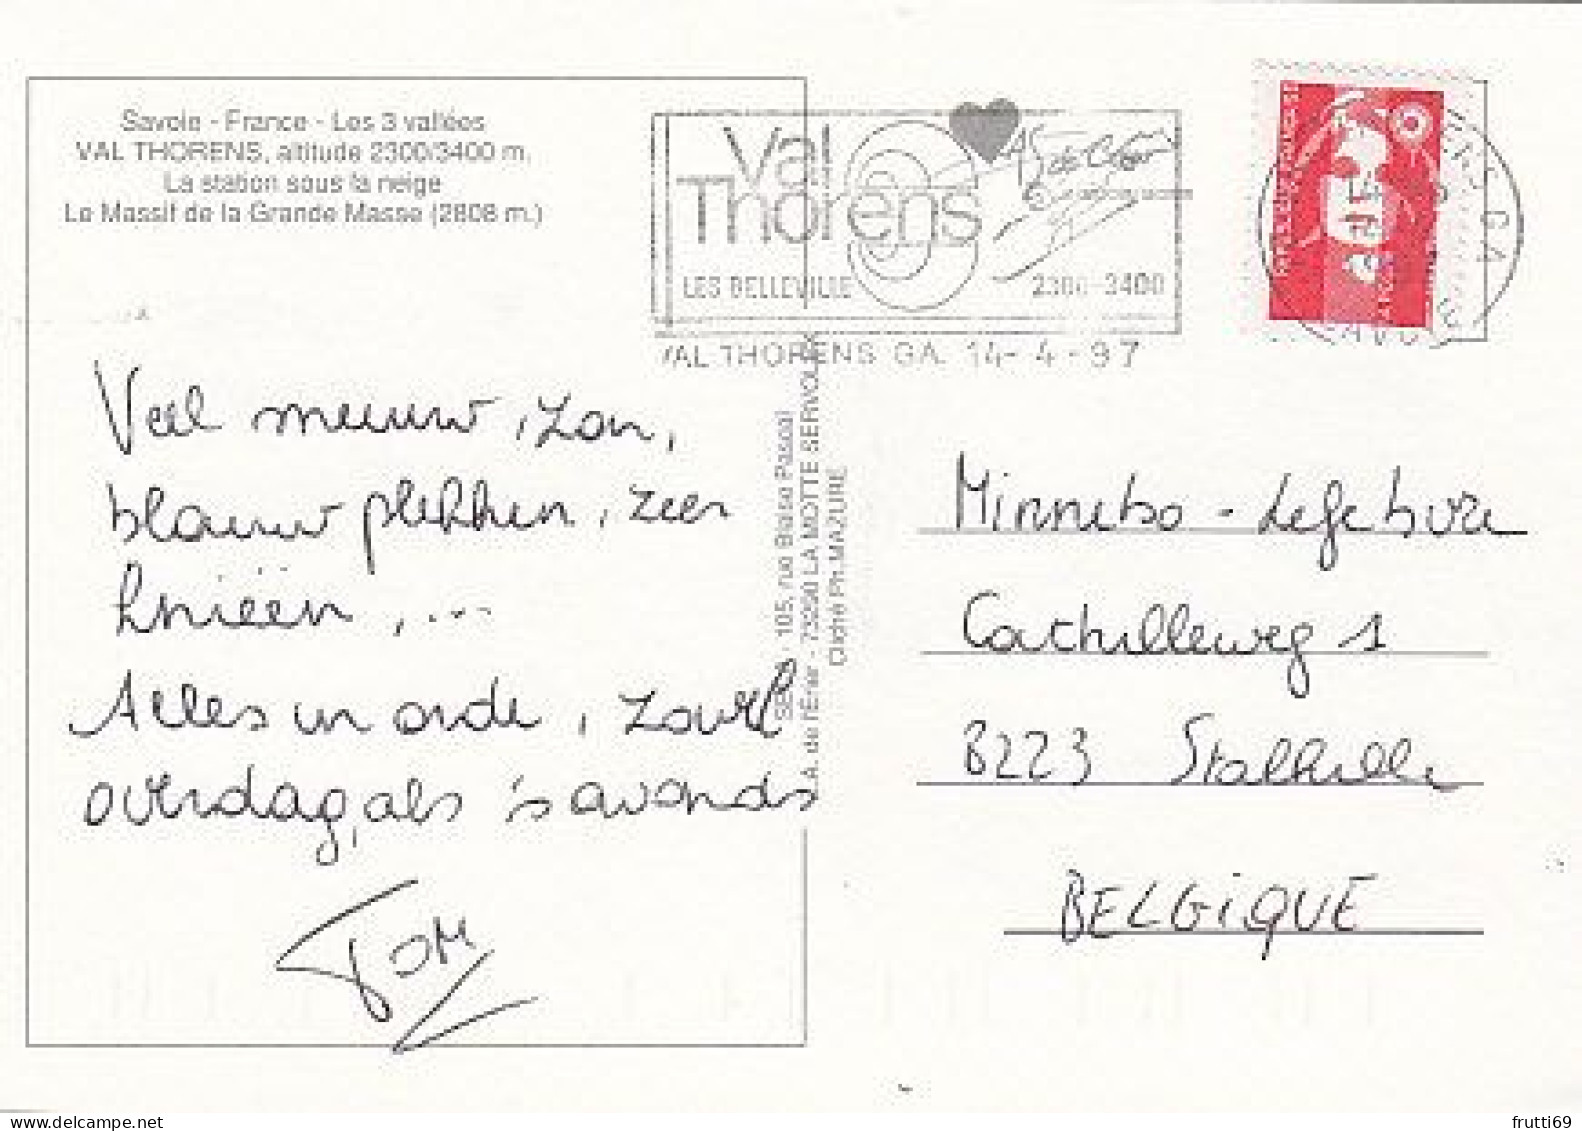 Savoie - France - Les 3 vallées
VAL THORENS, altitude 2300/3400 m.
La station sous la neige
Le Massif de la Grande Masse (2808 m.)
Val
Thorens
LES BELLEVILLE
2300-3400
VAL THORENS GA. 14-4-97
Veel sneeuw, zon,
blauw plekken, zeer
knieën, ...
Alles in orde, zowel
overdag, als 's avonds
TOM
105, rue Blaise Pascal
Z.A. de l'Erier - 73290 LA MOTTE SERVOLEX
Cliché Ph. MAZURE
Minnebo - Lefebvre
Cathilleweg 1
8223 Stalhille
BELGIQUE
frutti69